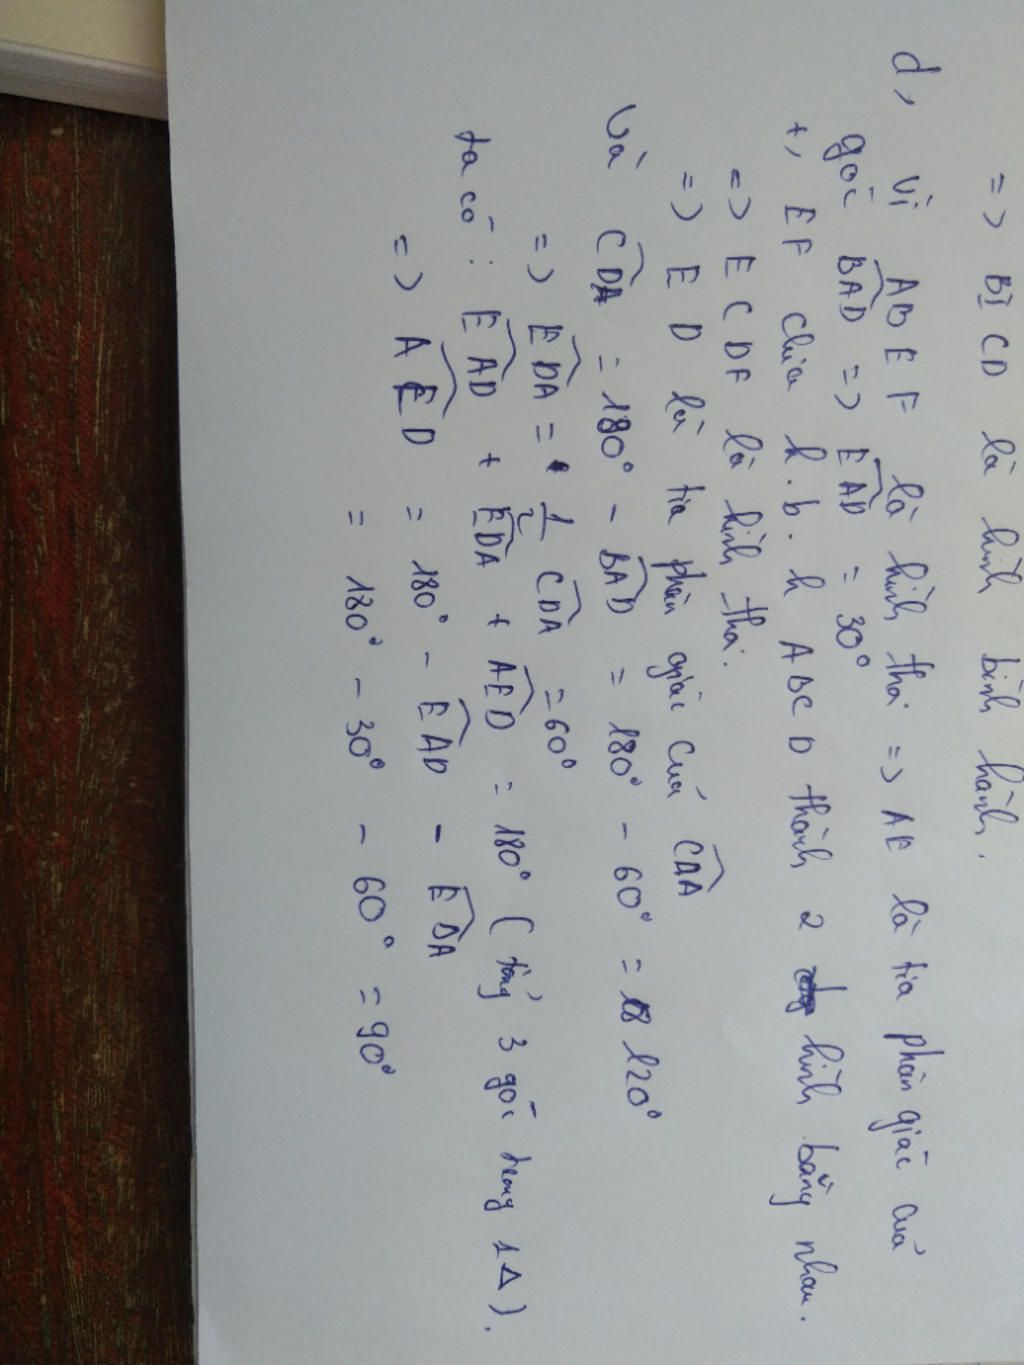 => BICD là hình bình hành.
d, Vì ABEF là hình thoi => AE là tia phân giác của
góc BAD => EAD = 30°
+, EF chia h.b.h ABCD thành 2 hình bằng nhau.
=> ECDF là hình thoi.
=> ED là tia phân giác của CDA
Và CDA = 180° - BAD = 180° - 60° = 120°
=> EDA = 1/2 CDA = 60°
ta có: EAD + EDA + AED = 180° (tổng 3 góc trong 1Δ).
=> AED = 180° - EAD - EDA
= 180° - 30° - 60° = 90°